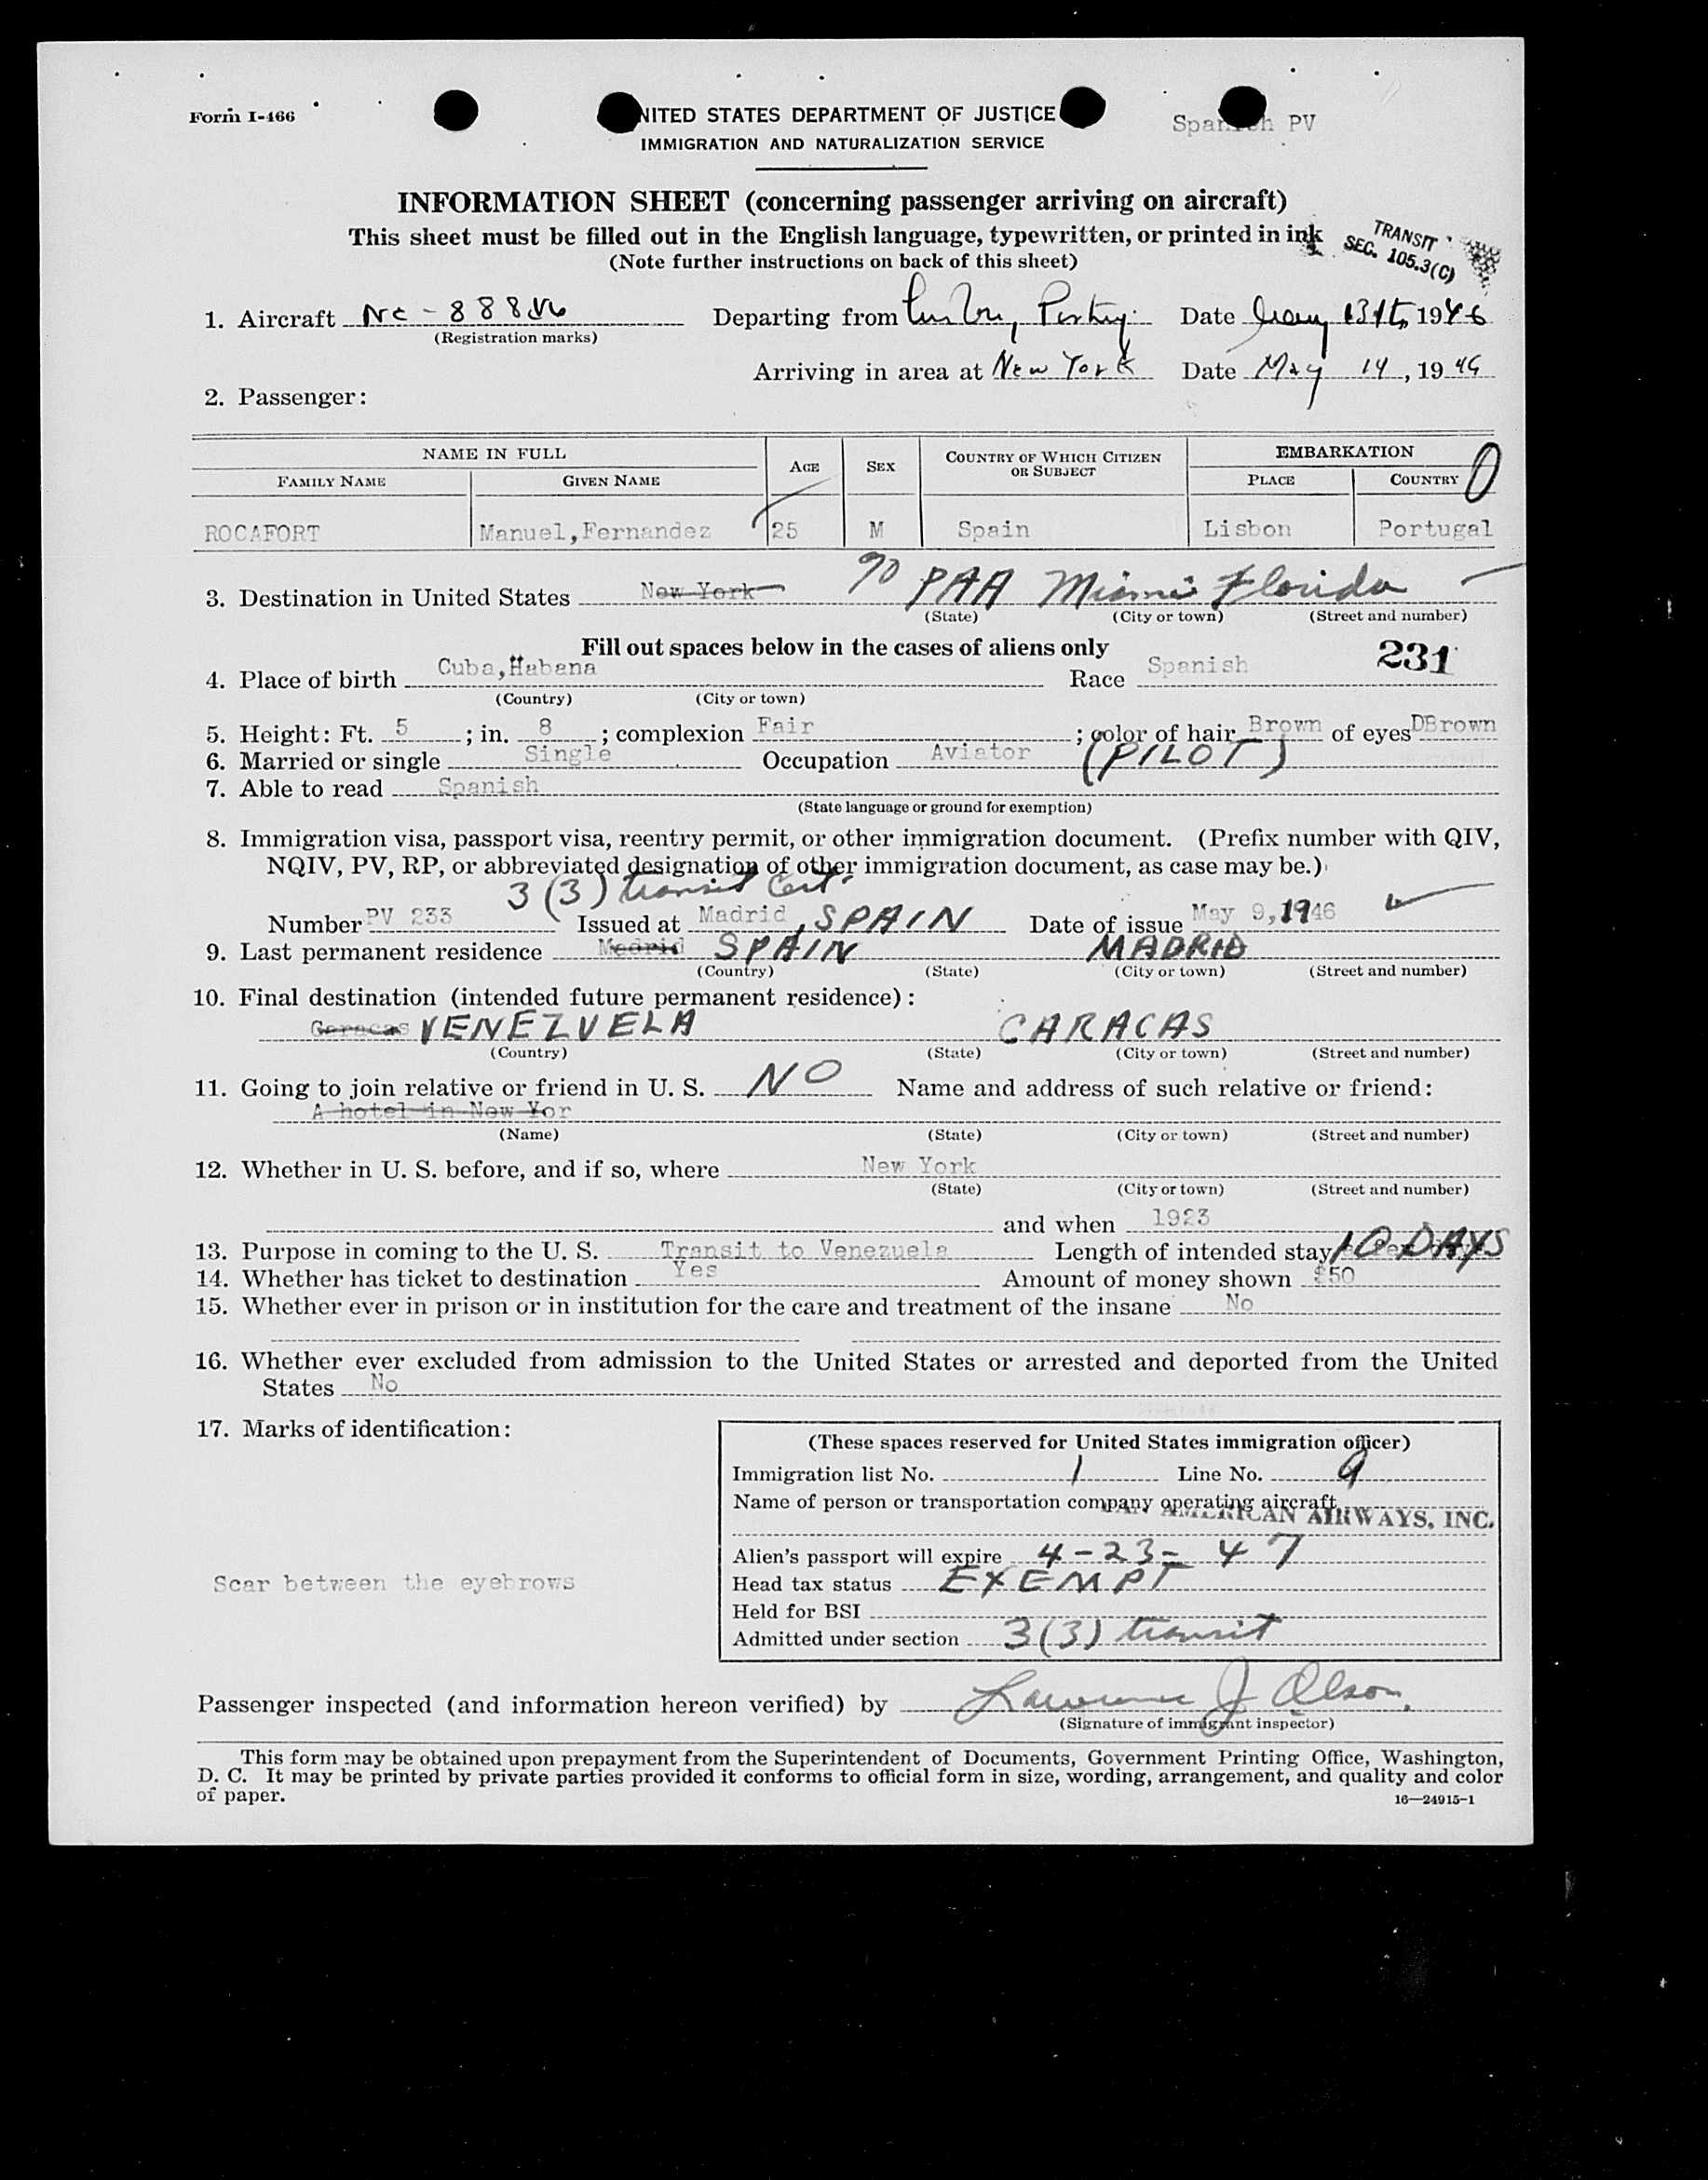 Form I-466
UNITED STATES DEPARTMENT OF JUSTICE
Spanish PV
IMMIGRATION AND NATURALIZATION SERVICE
INFORMATION SHEET (concerning passenger arriving on aircraft)
This sheet must be filled out in the English language, typewritten, or printed in ink
TRANSIT
SEC. 105.3(C)
(Note further instructions on back of this sheet)
1. Aircraft Departing from Date 13th, 1946
(Registration marks)
Arriving in area at New York Date May 14, 1946
2. Passenger:
NAME IN FULL AGE SEX COUNTRY OF WHICH CITIZEN OR SUBJECT EMBARKATION
FAMILY NAME GIVEN NAME PLACE COUNTRY
ROCAFORT Manuel,Fernandez 25 M Spain Lisbon Portugal
3. Destination in United States New York PAA Miami Florida
(State) (City or town) (Street and number)
Fill out spaces below in the cases of aliens only
231
4. Place of birth Cuba,Habana Race Spanish
(Country) (City or town)
5. Height: Ft. 5 ; in. 8 ; complexion Fair ; color of hair Brown of eyes DBrown
6. Married or single Single Occupation Aviator (PILOT)
7. Able to read Spanish
(State language or ground for exemption)
8. Immigration visa, passport visa, reentry permit, or other immigration document. (Prefix number with QIV,
NQIV, PV, RP, or abbreviated designation of other immigration document, as case may be.)
3 (3) transit Cert.
Number PV 233 Issued at Madrid, SPAIN Date of issue May 9, 1946
9. Last permanent residence Madrid SPAIN MADRID
(Country) (State) (City or town) (Street and number)
10. Final destination (intended future permanent residence):
Caracas VENEZUELA CARACAS
(Country) (State) (City or town) (Street and number)
11. Going to join relative or friend in U. S. NO Name and address of such relative or friend:
A hotel in New Yor
(Name) (State) (City or town) (Street and number)
12. Whether in U. S. before, and if so, where New York
(State) (City or town) (Street and number)
and when 1923
13. Purpose in coming to the U. S. Transit to Venezuela Length of intended stay 10 DAYS
14. Whether has ticket to destination Yes Amount of money shown $50
15. Whether ever in prison or in institution for the care and treatment of the insane No
16. Whether ever excluded from admission to the United States or arrested and deported from the United
States No
17. Marks of identification:
Scar between the eyebrows
(These spaces reserved for United States immigration officer)
Immigration list No. 1 Line No. 9
Name of person or transportation company operating aircraft
PAN AMERICAN AIRWAYS, INC.
Alien's passport will expire 4-23-47
Head tax status EXEMPT
Held for BSI
Admitted under section 3(3) transit
Passenger inspected (and information hereon verified) by Lawrence J Olson.
(Signature of immigrant inspector)
This form may be obtained upon prepayment from the Superintendent of Documents, Government Printing Office, Washington,
D. C. It may be printed by private parties provided it conforms to official form in size, wording, arrangement, and quality and color
of paper.
16—24915-1